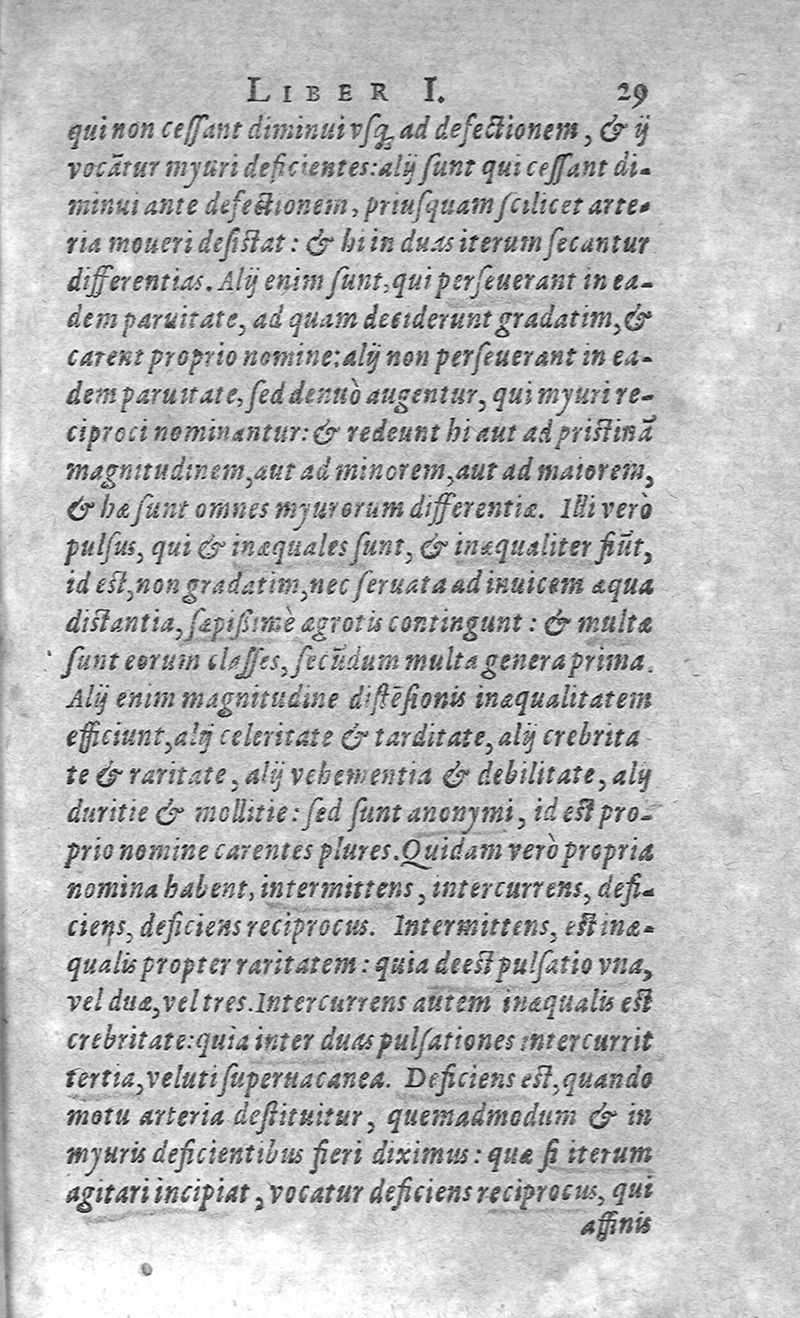 LIBER I. 29
qui non ceſſant diminui vſq; ad defectionem, & ij
vocãtur myuri deficientes: alij ſunt qui ceſſant di-
minui ante defectionem, priuſquam ſcilicet arte-
ria moueri deſiſtat: & hi in duas iterum ſecantur
differentias. Alij enim ſunt, qui perſeuerant in ea-
dem paruitate, ad quam deciderunt gradatim, &
carent proprio nomine: alij non perſeuerant in ea-
dem paruitate, ſed denuò augentur, qui myuri re-
ciproci nominantur: & redeunt hi aut ad priſtinã
magnitudinem, aut ad minorem, aut ad maiorem,
& hæ ſunt omnes myurorum differentiæ. Illi verò
pulſus, qui & inæquales ſunt, & inæqualiter fiũt,
id eſt, non gradatim, nec ſeruata ad inuicem æqua
diſtantia, ſæpißimè ægrotis contingunt: & multæ
ſunt eorum claſſes, ſecũdum multa genera prima.
Alij enim magnitudine diſtẽſionis inæqualitatem
efficiunt, alij celeritate & tarditate, alij crebrita
te & raritate, alij vehementia & debilitate, alij
duritie & mollitie: ſed ſunt anonymi, id eſt pro-
prio nomine carentes plures. Quidam verò propria
nomina habent, intermittens, intercurrens, defi-
ciens, deficiens reciprocus. Intermittens, eſt inæ-
qualis propter raritatem: quia deeſt pulſatio vna,
vel duæ, vel tres. Intercurrens autem inæqualis eſt
crebritate: quia inter duas pulſationes intercurrit
tertia, veluti ſuperuacanea. Deficiens eſt, quando
motu arteria deſtituitur, quemadmodum & in
myuris deficientibus fieri diximus: quæ ſi iterum
agitari incipiat, vocatur deficiens reciprocus, qui
affinis